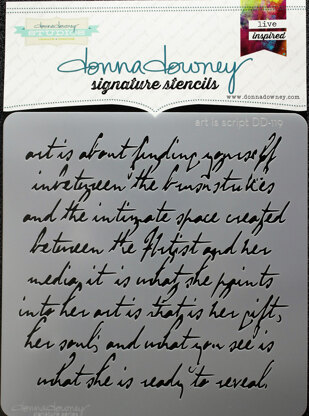 donnadowney
STUDIOS
live
inspired
donnadowney
signature stencils
www.donnadowney.com
art is script DD-119
art is about finding yourself
inbetween the brushstrokes
and the intimate space created
between the Artist and her
media, it is what she paints
into her art is that is her gift,
her soul, and what you see is
what she is ready to reveal.
donnadowney
signature series